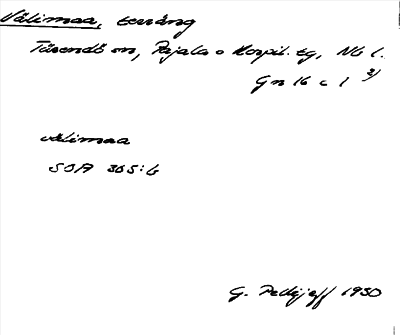 Välimaa, terräng
Tärendö sn, Pajala o Korpil. tg, Nb l.
Gn 16 c 1 2)
välimaa
SOA 365:6
G. Pellijeff 1930